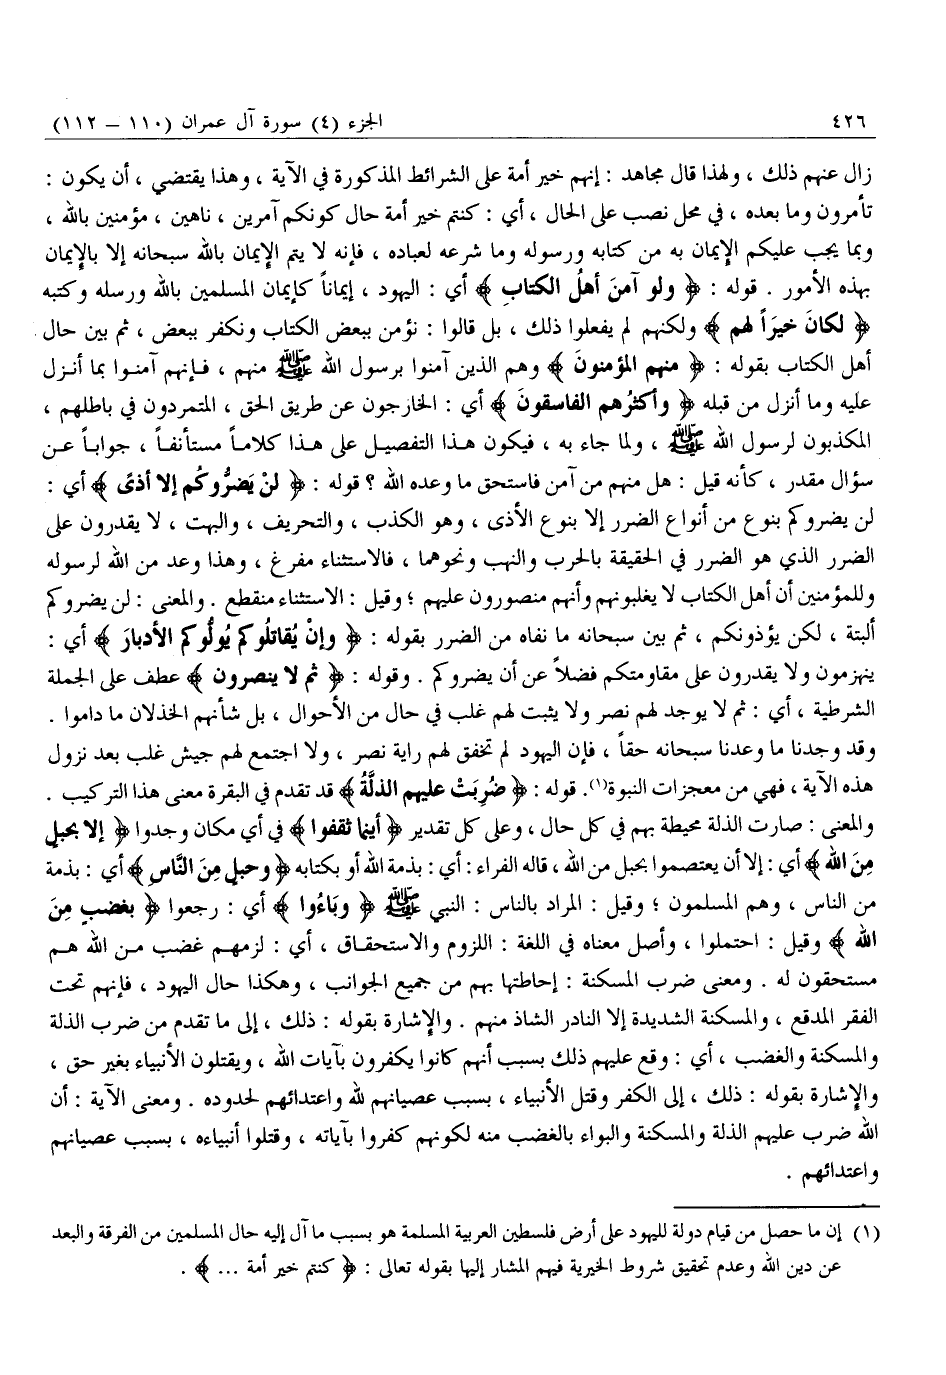 ٤٢٦ الجزء (٤) سورة آل عمران (١١٠ – ١١٢)
زال عنهم ذلك ، ولهذا قال مجاهد : إنهم خير أمة على الشرائط المذكورة في الآية ، وهذا يقتضي ، أن يكون :
تأمرون وما بعده ، في محل نصب على الحال ، أي : كنتم خير أمة حال كونكم آمرين ، ناهين ، مؤمنين بالله ،
وبما يجب عليكم الإيمان به من كتابه ورسوله وما شرعه لعباده ، فإنه لا يتم الإيمان بالله سبحانه إلا بالإيمان
بهذه الأمور . قوله : ﴿ ولو آمنَ أهلُ الكتابِ ﴾ أي : اليهود ، إيماناً كإيمان المسلمين بالله ورسله وكتبه
﴿ لكانَ خيرَاً لهم ﴾ ولكنهم لم يفعلوا ذلك ، بل قالوا : نؤمن ببعض الكتاب ونكفر ببعض ، ثم بين حال
أهل الكتاب بقوله : ﴿ منهم المؤمنونَ ﴾ وهم الذين آمنوا برسول الله ﷺ منهم ، فإنهم آمنوا بما أنزل
عليه وما أنزل من قبله ﴿ وأكثرُهم الفاسقونَ ﴾ أي : الخارجون عن طريق الحق ، المتمردون في باطلهم ،
المكذبون لرسول الله ﷺ ، ولما جاء به ، فيكون هذا التفصيل على هذا كلاماً مستأنفاً ، جواباً عن
سؤال مقدر ، كأنه قيل : هل منهم من آمن فاستحق ما وعده الله ؟ قوله : ﴿ لنْ يَضرُّوكُم إلا أذىً ﴾ أي :
لن يضروكم بنوع من أنواع الضرر إلا بنوع الأذى ، وهو الكذب ، والتحريف ، والبهت ، لا يقدرون على
الضرر الذي هو الضرر في الحقيقة بالحرب والنهب ونحوهما ، فالاستثناء مفرغ ، وهذا وعد من الله لرسوله
وللمؤمنين أن أهل الكتاب لا يغلبونهم وأنهم منصورون عليهم ؛ وقيل : الاستثناء منقطع . والمعنى : لن يضروكم
ألبتة ، لكن يؤذونكم ، ثم بين سبحانه ما نفاه من الضرر بقوله : ﴿ وإنْ يُقاتلُوكم يُولُّوكم الأدبارَ ﴾ أي :
ينهزمون ولا يقدرون على مقاومتكم فضلاً عن أن يضروكم . وقوله : ﴿ ثم لا ينصرون ﴾ عطف على الجملة
الشرطية ، أي : ثم لا يوجد لهم نصر ولا يثبت لهم غلب في حال من الأحوال ، بل شأنهم الخذلان ما داموا .
وقد وجدنا ما وعدنا سبحانه حقاً ، فإن اليهود لم تخفق لهم راية نصر ، ولا اجتمع لهم جيش غلب بعد نزول
هذه الآية ، فهي من معجزات النبوة(١). قوله : ﴿ ضُرِبَتْ عليهم الذلَّةُ ﴾ قد تقدم في البقرة معنى هذا التركيب .
والمعنى : صارت الذلة محيطة بهم في كل حال ، وعلى كل تقدير ﴿ أينما ثقفوا ﴾ في أي مكان وجدوا ﴿ إلا بحبلٍ
مِنَ الله ﴾ أي : إلا أن يعتصموا بحبل من الله ، قاله الفراء : أي : بذمة الله أو بكتابه ﴿ وحبلٍ مِنَ النَّاسِ ﴾ أي : بذمة
من الناس ، وهم المسلمون ؛ وقيل : المراد بالناس : النبي ﷺ ﴿ وبَاءُوا ﴾ أي : رجعوا ﴿ بغضبٍ مِنَ
الله ﴾ وقيل : احتملوا ، وأصل معناه في اللغة : اللزوم والاستحقاق ، أي : لزمهم غضب من الله هم
مستحقون له . ومعنى ضرب المسكنة : إحاطتها بهم من جميع الجوانب ، وهكذا حال اليهود ، فإنهم تحت
الفقر المدقع ، والمسكنة الشديدة إلا النادر الشاذ منهم . والإشارة بقوله : ذلك ، إلى ما تقدم من ضرب الذلة
والمسكنة والغضب ، أي : وقع عليهم ذلك بسبب أنهم كانوا يكفرون بآيات الله ، ويقتلون الأنبياء بغير حق ،
والإشارة بقوله : ذلك ، إلى الكفر وقتل الأنبياء ، بسبب عصيانهم لله واعتدائهم لحدوده . ومعنى الآية : أن
الله ضرب عليهم الذلة والمسكنة والبواء بالغضب منه لكونهم كفروا بآياته ، وقتلوا أنبياءه ، بسبب عصيانهم
واعتدائهم .
(١) إن ما حصل من قيام دولة لليهود على أرض فلسطين العربية المسلمة هو بسبب ما آل إليه حال المسلمين من الفرقة والبعد
عن دين الله وعدم تحقيق شروط الخيرية فيهم المشار إليها بقوله تعالى : ﴿ كنتم خير أمة ... ﴾ .